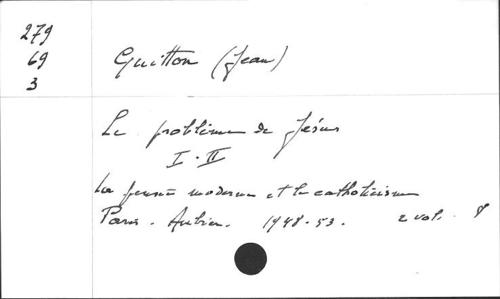 279
69
3
Guitton (Jean)
Le problème de Jésus
I - II
La pensée moderne et le catholicisme
Paris - Aubier - 1948-53. 2 vol. 8